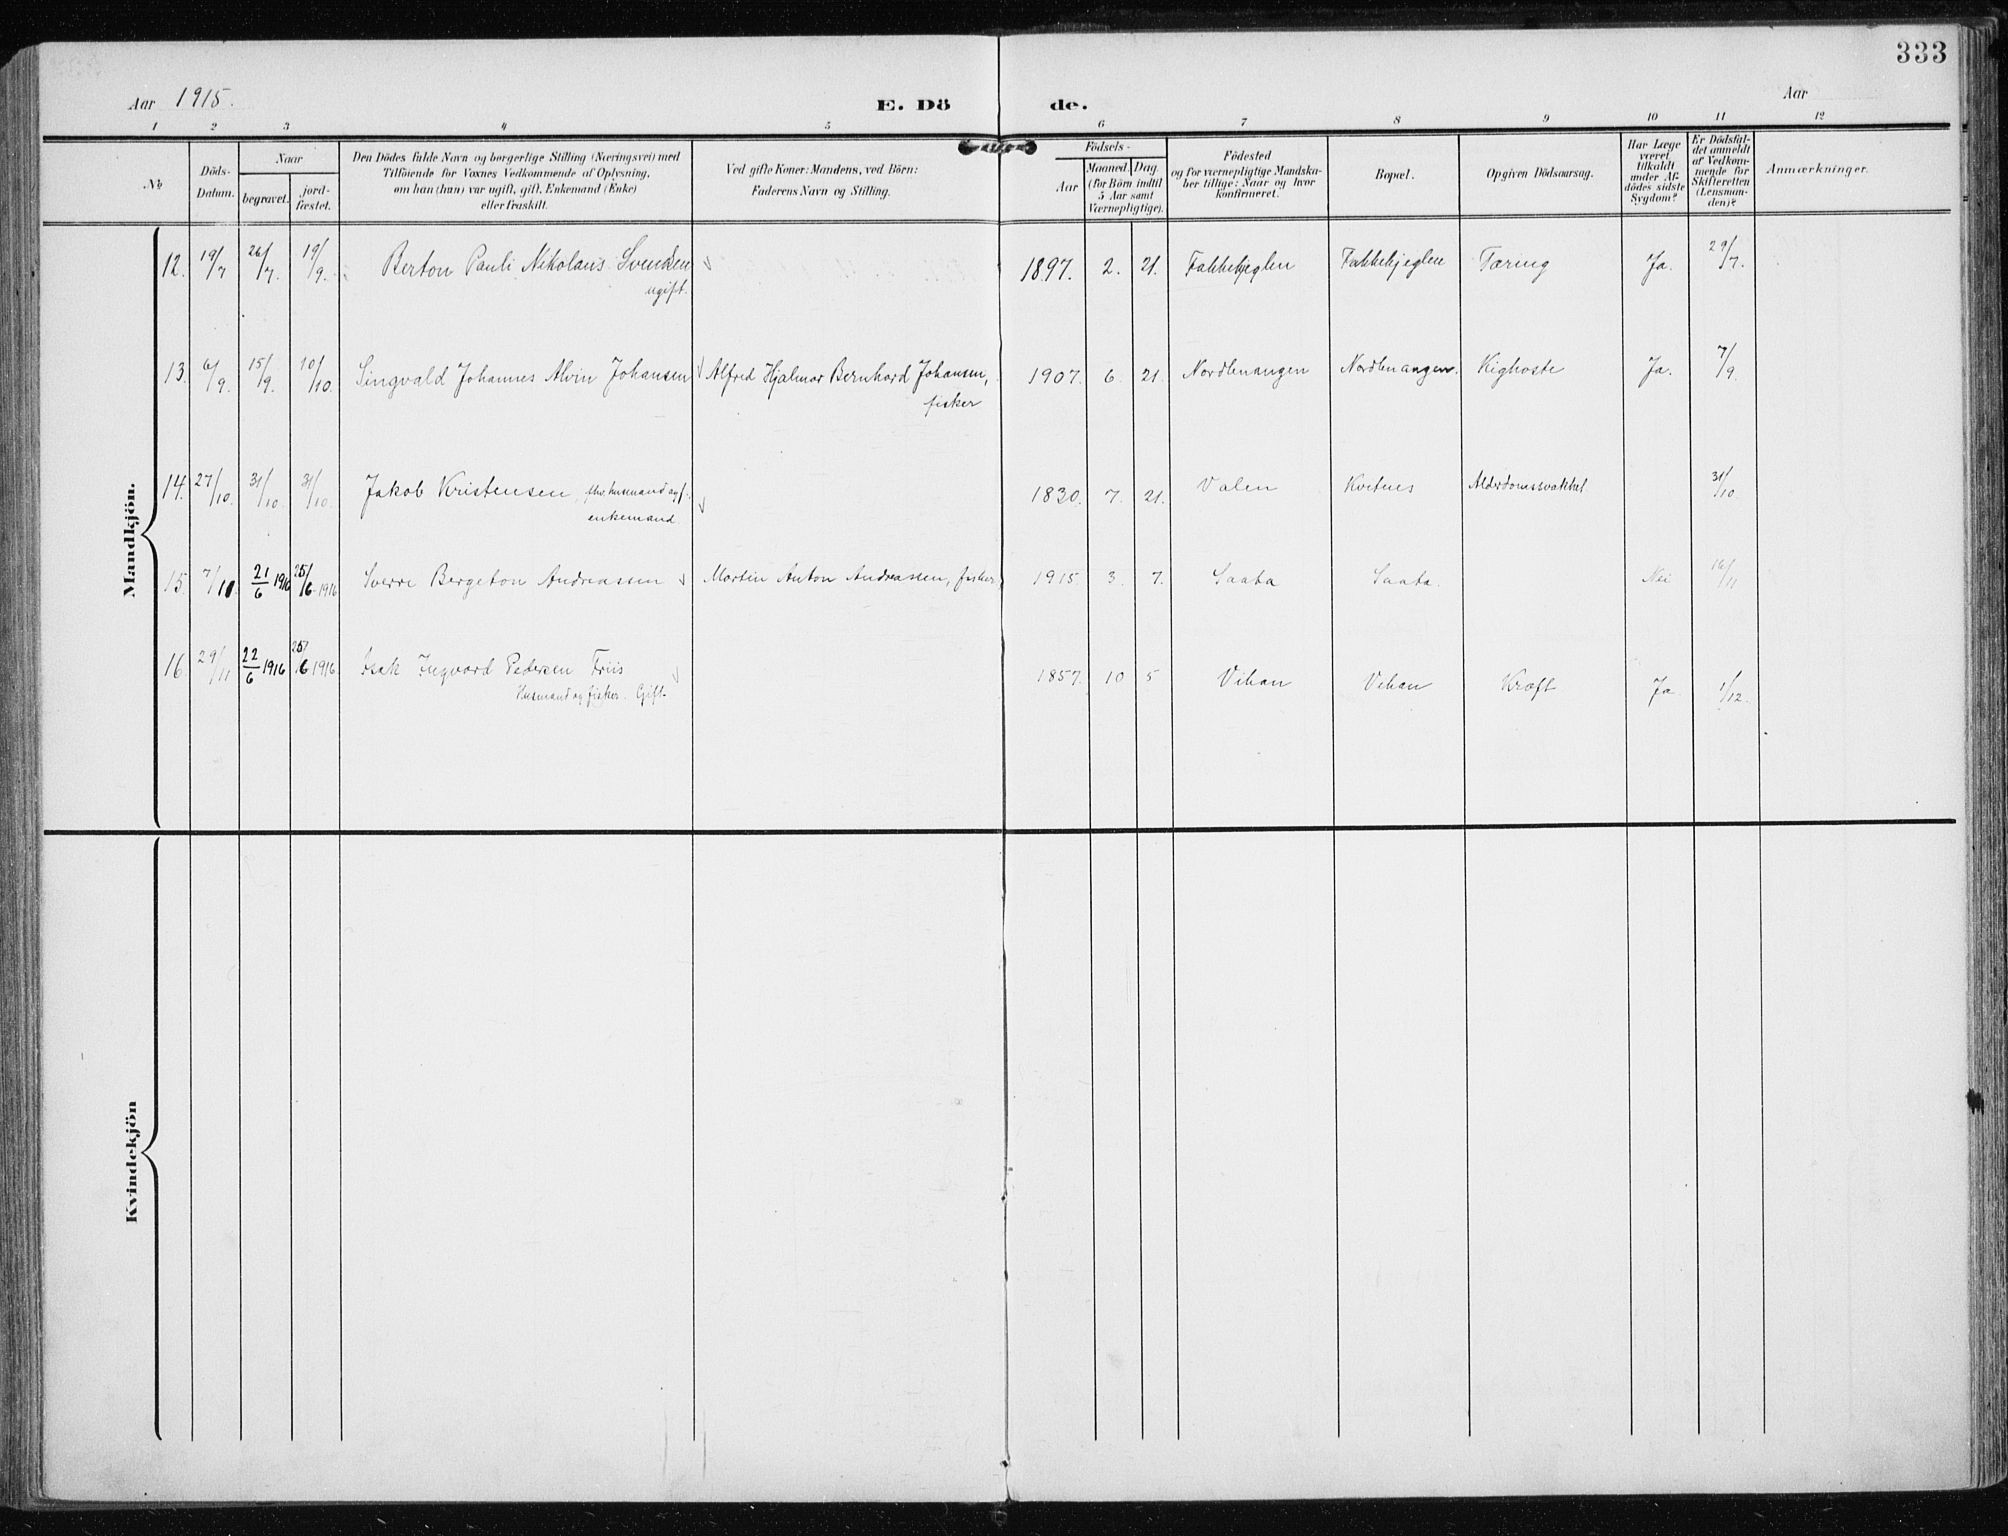 333
Aar 1915.
E. Dö de.
Aar
1 2 3 4 5 6 7 8 9 10 11 12
No.
Döds-
Datum.
Naar
begravet.
jord-
fæstet.
Den Dödes fulde Navn og borgerlige Stilling (Næringsvei) med
Tilföiende for Voxnes Vedkommende af Oplysning,
om han (hun) var ugift, gift, Enkemand (Enke)
eller fraskilt.
Ved gifte Koner: Mandens, ved Börn:
Faderens Navn og Stilling.
Födsels-
Aar
Maaned. Dag.
(for Börn indtil
5 Aar samt
Værnepligtige).
Födested
og for værnepligtige Mandska-
ber tillige: Naar og hvor
konfirmeret.
Bopæl.
Opgiven Dödsaarsag.
Har Læge
været
tilkaldt
under Af-
dödes sidste
Sygdom?
Er Dödsfal-
det anmeldt
af Vedkom-
mende for
Skifteretten
(Lensman-
den)?
Anmærkninger.
Mandkjön.
12. 19/7 26/7. 19/9. Berton Pauli Nikolaus Svendsen 1897. 2. 21. Fakkekjeglen Fakkekjeglen Tæring Ja. 29/7.
ugift.
13. 6/9. 15/9. 10/10. Singvald Johannes Alvin Johansen Alfred Hjalmar Bernhard Johansen, 1907. 6. 21. Nordlenangen Nordlenangen. Kighoste Ja. 7/9.
fisker
14. 27/10. 31/10. 31/10. Jakob Kristensen 1830. 7. 21. Valen Kvitnes Alderdomssvakhet 31/10.
enkemand
15. 7/11. 21/6 1916 25/6 1916 Sverre Bergeton Andreassen Martin Anton Andreassen, fisker 1915 3. 7. Nei 16/11
16. 29/11 22/6 1916 25/6 1916 Isak Ingvard Pedersen Friis 1857. 10 5 Kræft Ja 1/12.
Husmand og fisker. Gift
Kvindekjön